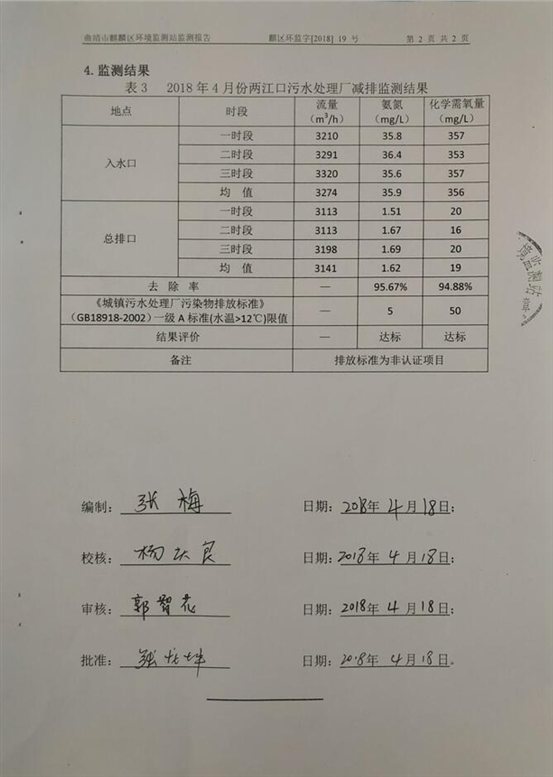 曲靖市麒麟区环境监测站监测报告 麒区环监字[2018] 19 号 第 2 页 共 2 页
4. 监测结果
表 3 2018 年 4 月份两江口污水处理厂减排监测结果
地点 时段 流量（m³/h） 氨氮（mg/L） 化学需氧量（mg/L）
入水口 一时段 3210 35.8 357
二时段 3291 36.4 353
三时段 3320 35.6 357
均 值 3274 35.9 356
总排口 一时段 3113 1.51 20
二时段 3113 1.67 16
三时段 3198 1.69 20
均 值 3141 1.62 19
去 除 率 — 95.67% 94.88%
《城镇污水处理厂污染物排放标准》
（GB18918-2002）一级 A 标准(水温>12℃)限值 — 5 50
结果评价 — 达标 达标
备注 排放标准为非认证项目
编制： 张梅 日期：2018年 4月18日；
校核： 杨 良 日期：2018年 4月18日；
审核： 郭智花 日期：2018年 4月18日；
批准： 日期：2018年 4月18日。